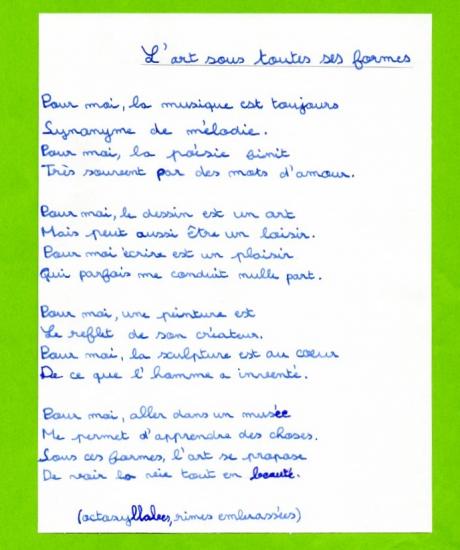 L'art sous toutes ses formes
Pour moi, la musique est toujours
Synonyme de mélodie.
Pour moi, la poésie finit
Très souvent par des mots d'amour.
Pour moi, le dessin est un art
Mais peut aussi être un loisir.
Pour moi écrire est un plaisir
Qui parfois me conduit nulle part.
Pour moi, une peinture est
Le reflet de son créateur.
Pour moi, la sculpture est au coeur
De ce que l'homme a inventé.
Pour moi, aller dans un musée
Me permet d'apprendre des choses.
Sous ces formes, l'art se propose
De voir la vie tout en beauté.
(octosyllabes, rimes embrassées)